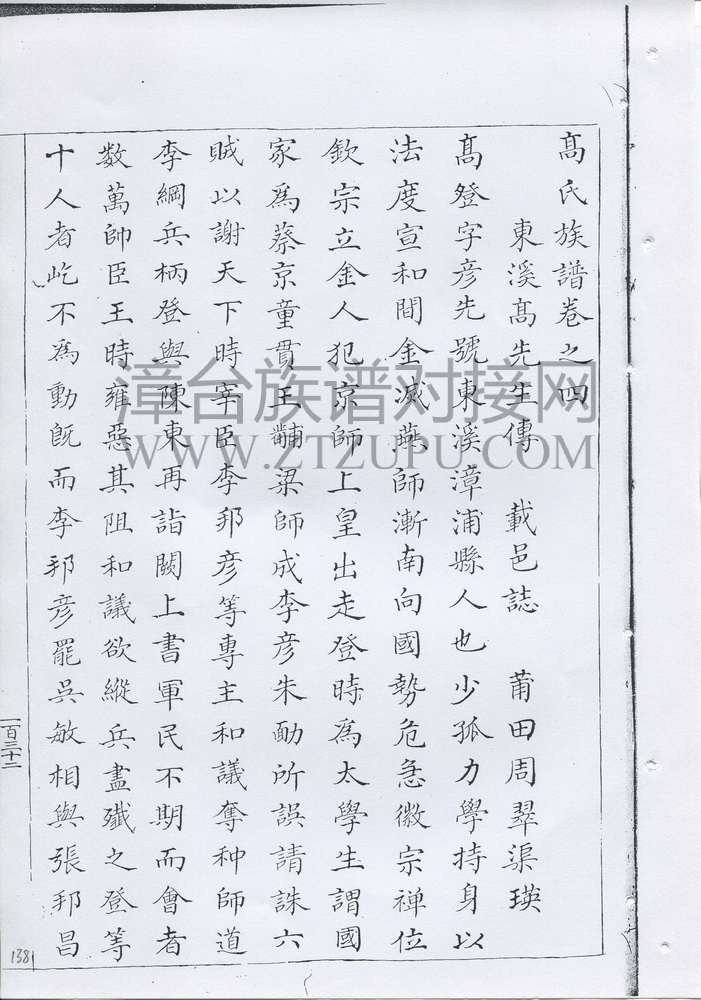 高氏族譜卷之四
東溪高先生傳 載邑誌 莆田周翠渠瑛
高登字彥先號東溪漳浦縣人也少孤力學持身以
法度宣和間金滅燕師漸南向國勢危急徽宗禪位
欽宗立金人犯京師上皇出走登時爲太學生謂國
家爲蔡京童貫王黼梁師成李彥朱勔所誤請誅六
賊以謝天下時宰臣李邦彥等專主和議奪种師道
李綱兵柄登與陳東再詣闕上書軍民不期而會者
数萬帥臣王時雍惡其阻和議欲縱兵盡殲之登等
十人者屹不爲動既而李邦彥罷吳敏相與張邦昌
一百三十二
138
漳台族谱对接网
WWW.ZTZUPU.COM